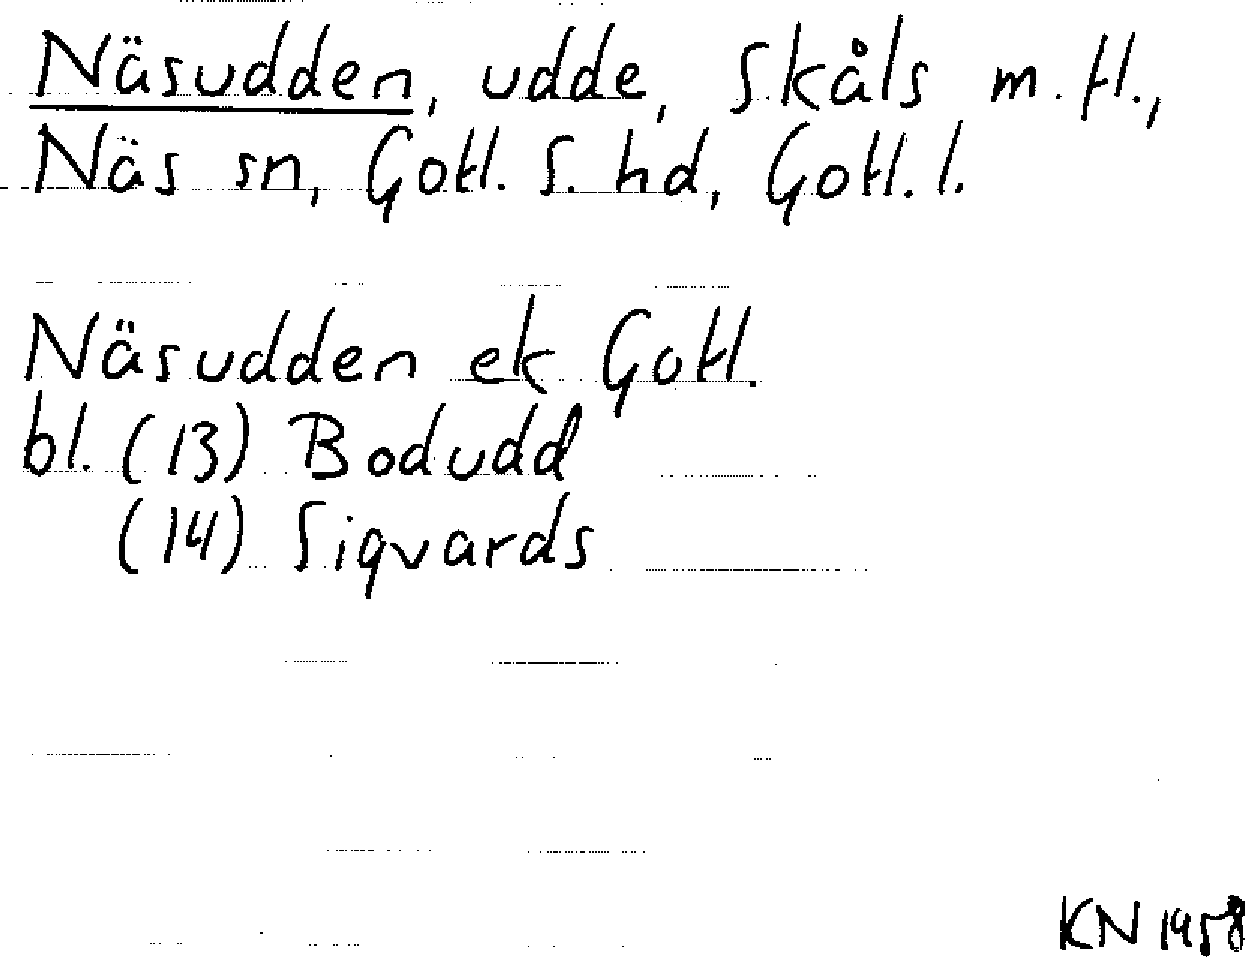 Näsudden, udde, Skåls m. fl.,
Näs sn, Gotl. S. hd, Gotl. l.
Näsudden ek Gotl.
bl. (13) Bodudd
(14) Sigvards
KN 1958